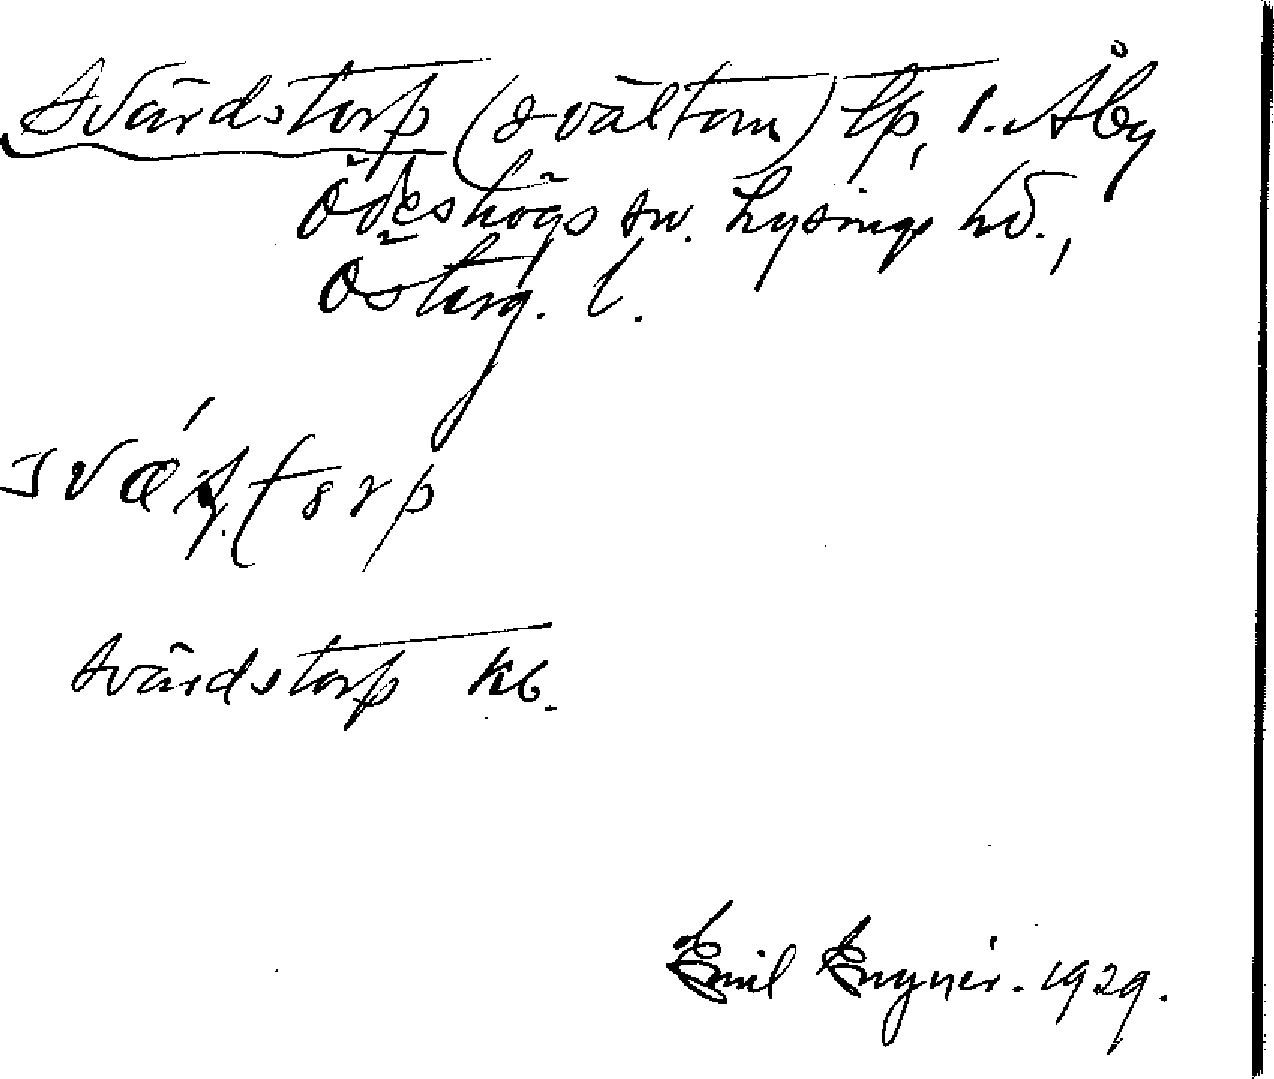 Svärdstorp (svältorn) tp, l. Åby
Ödeshögs sn. Lysings hd.,
Österg. l.
Svärdstorp kb.
Emil Engnér. 1929.